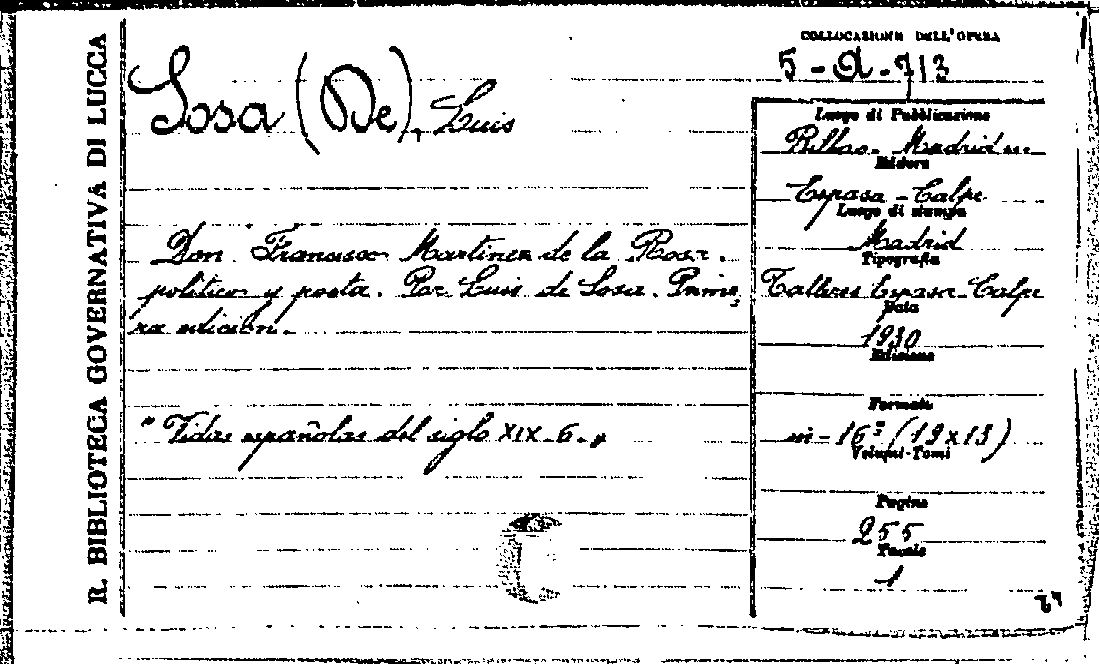 R. BIBLIOTECA GOVERNATIVA DI LUCCA
Sosa (De), Luis
Don Francisco Martinez de la Rosa.
politico y poeta. Por Luis de Sosa. Prime,
ra edición.
"Vidas españolas del siglo XIX-6."
COLLOCAZIONE DELL'OPERA
5-A-713
Luogo di Pubblicazione
Bilbao-Madrid
Editore
Espasa-Calpe
Luogo di stampa
Madrid
Tipografia
Talleres Espasa-Calpe
Data
1930
Edizione
Formato
in-16° (19x13)
Volumi-Tomi
Pagine
255
Tavole
1